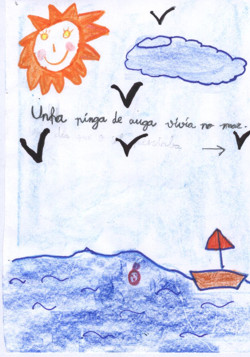 Unha pinga de auga vivía no mar.